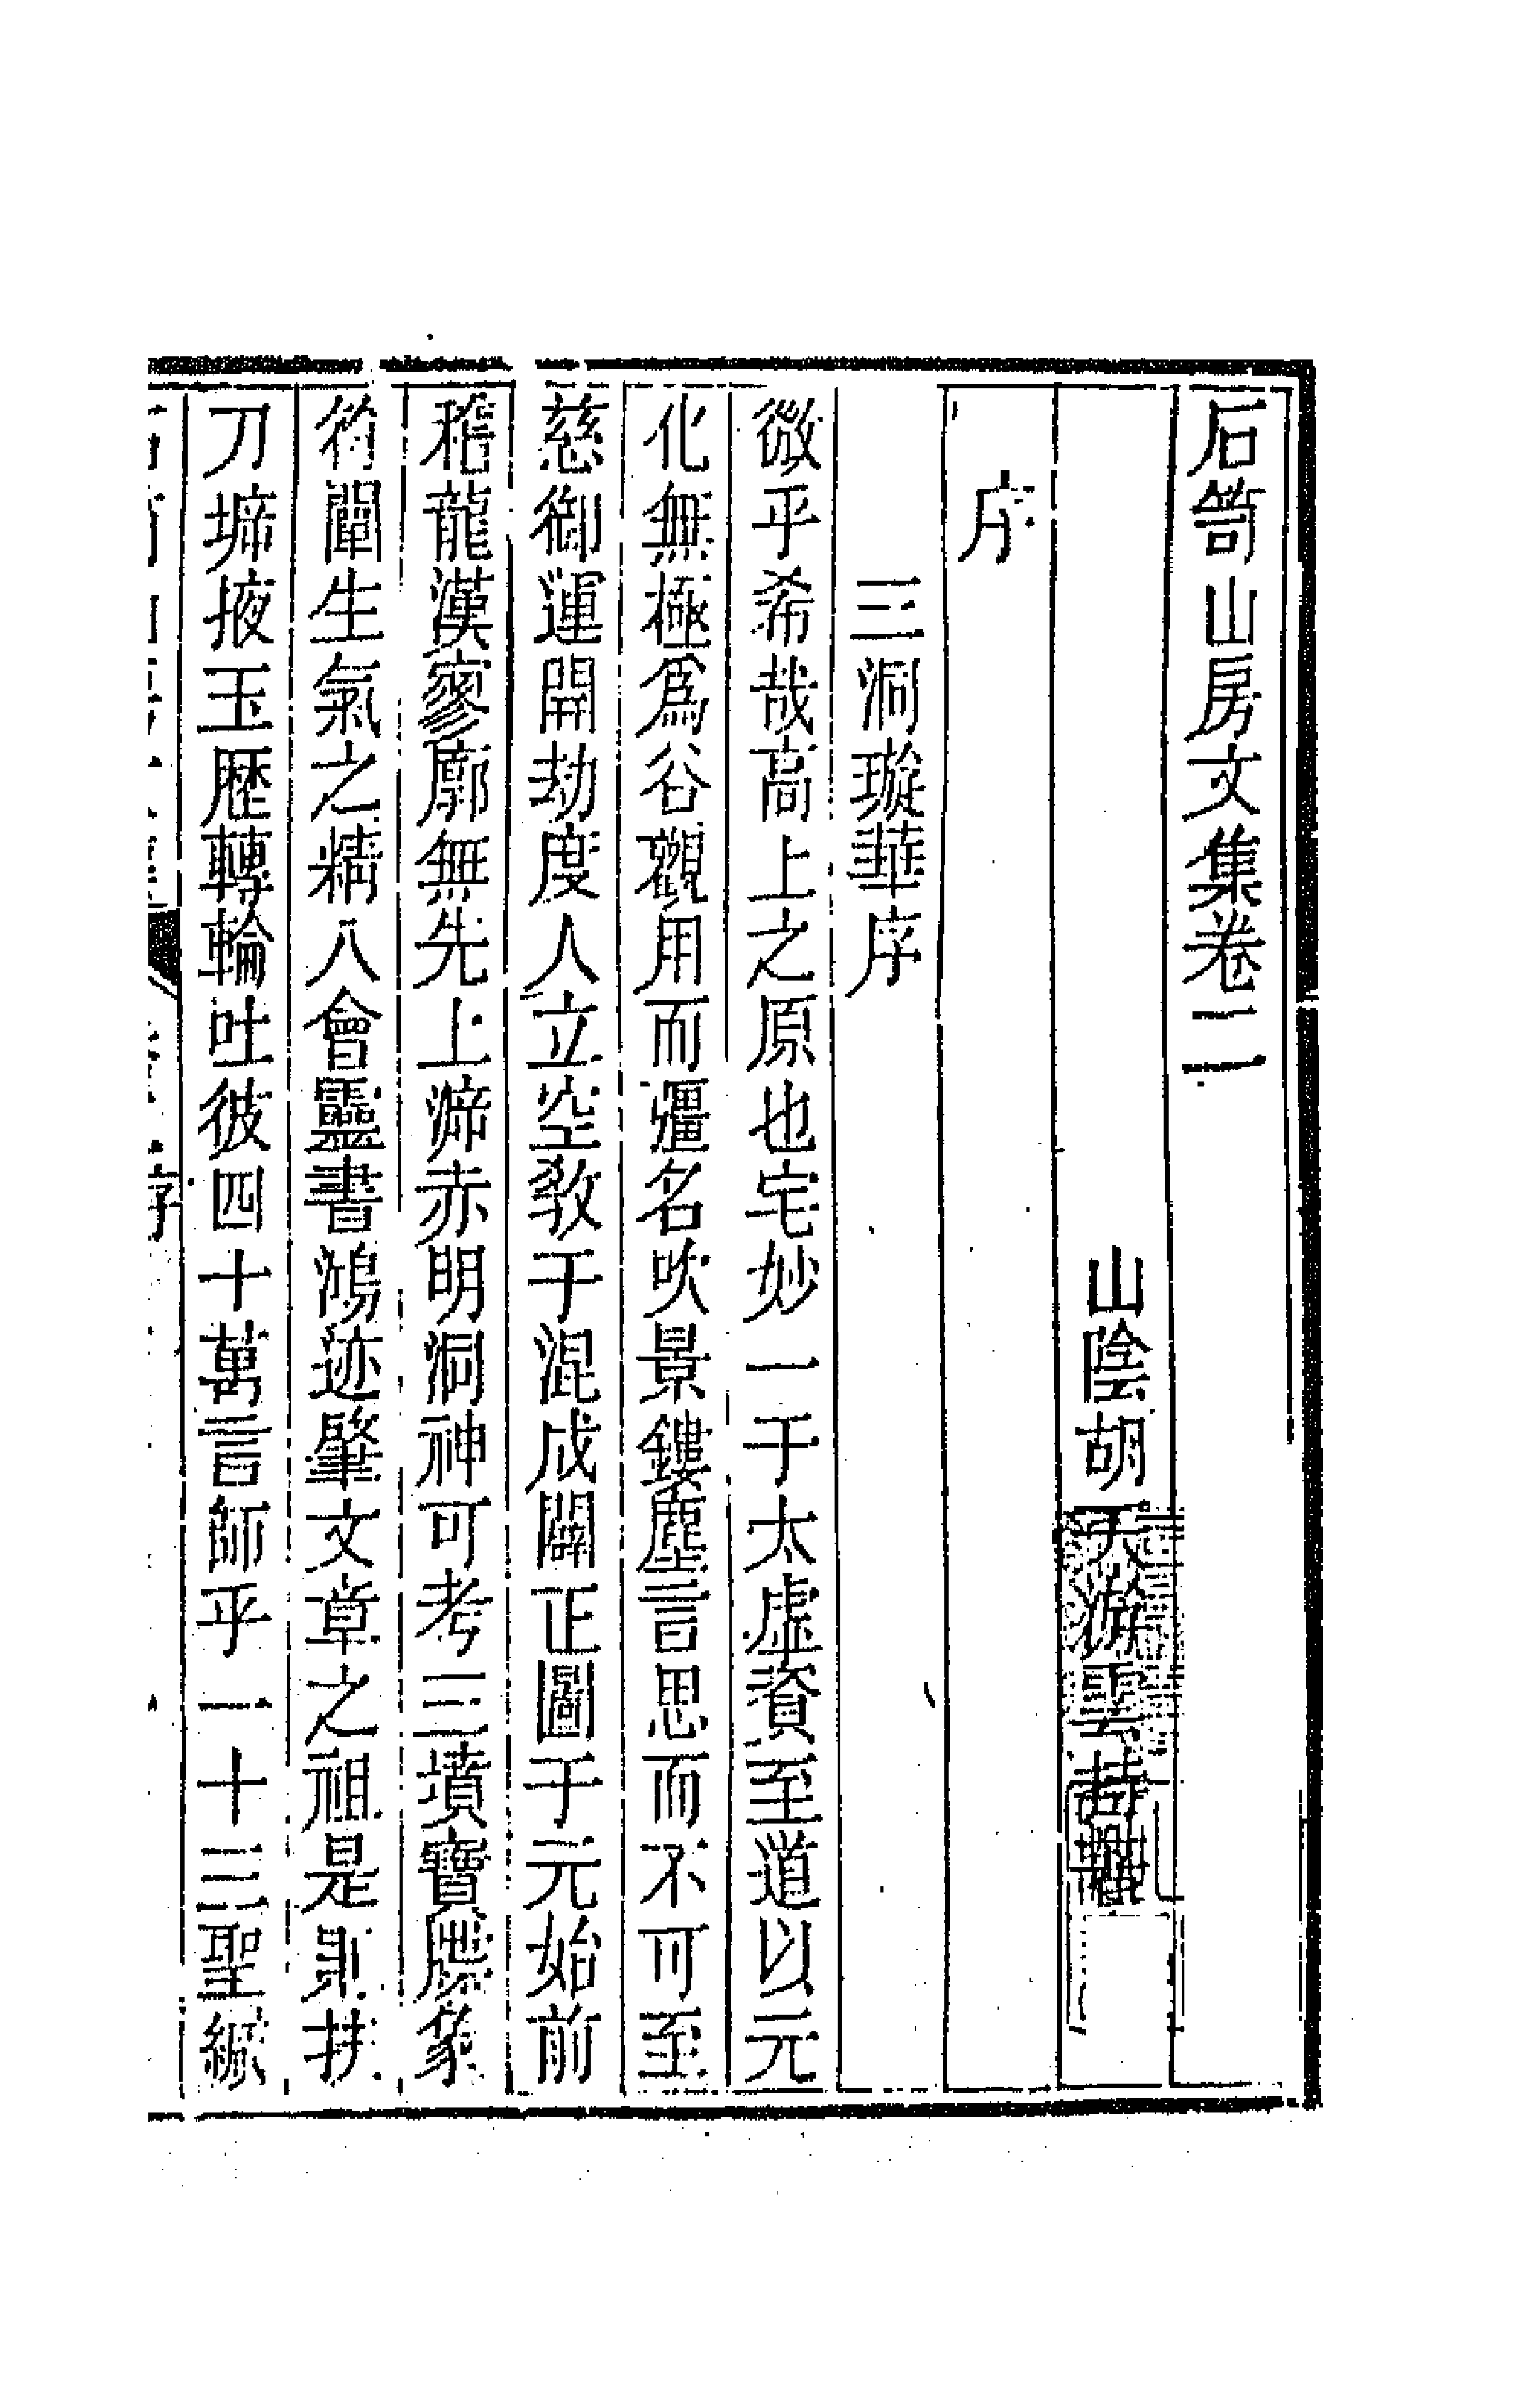 石笥山房文集卷二
山陰胡天游雲持譔
序
三洞璇華序
微乎希哉高上之原也宅妙一于太虛資至道以元
化無極爲谷觀用而彊名吹景鏤塵言思而不可至
慈御運開劫度人立空敎于混成闢正圖于元始前
稽龍漢寥廓無先上㴑赤明洞神可考三墳寶牒篆
符闡生氣之精八會靈書鴻迹肇文章之祖是則扶
刀掖玉歷轉輪吐彼四十萬言師乎一十三聖緘